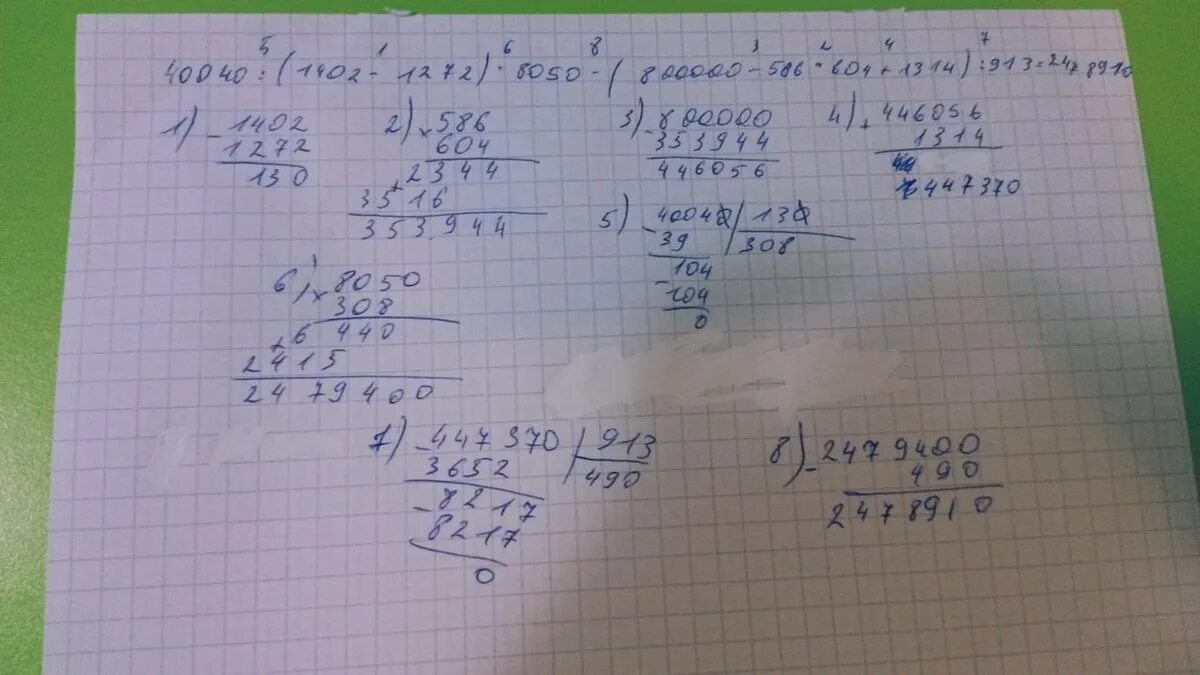 5 1 6 8 3 2 4 7
40040 : (1402 - 1272) · 8050 - (800000 - 586 · 604 + 1314) : 913 = 2478910
1) - 1402
1272
130
2) × 586
604
+ 2344
3516
353944
3) - 800000
353944
446056
4) + 446056
1314
447370
5) - 40040 | 130
39 | 308
- 104
104
0
6) × 8050
308
+ 6440
2415
2479400
7) - 447370 | 913
3652 | 490
- 8217
8217
0
8) - 2479400
490
2478910